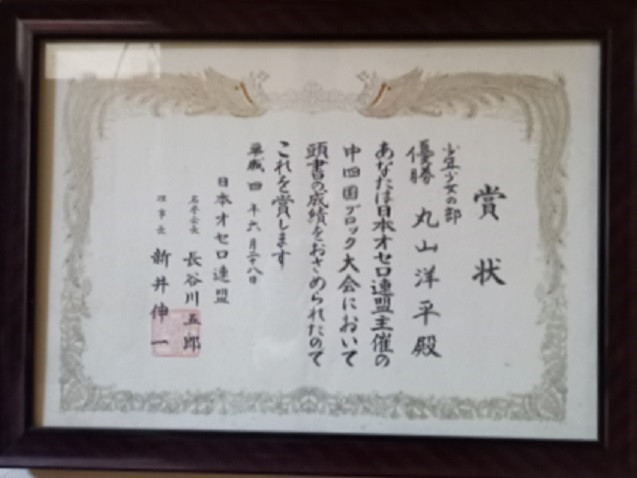 賞状
少年少女の部
優勝 丸山洋平殿
あなたは日本オセロ連盟主催の
中四国ブロック大会において
頭書の成績をおさめられたので
これを賞します
平成四年六月二十八日
日本オセロ連盟
名誉会長 長谷川五郎
理事長 新井伸一